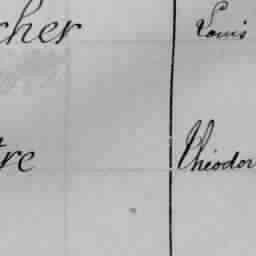 cher Louis
tre Theodor